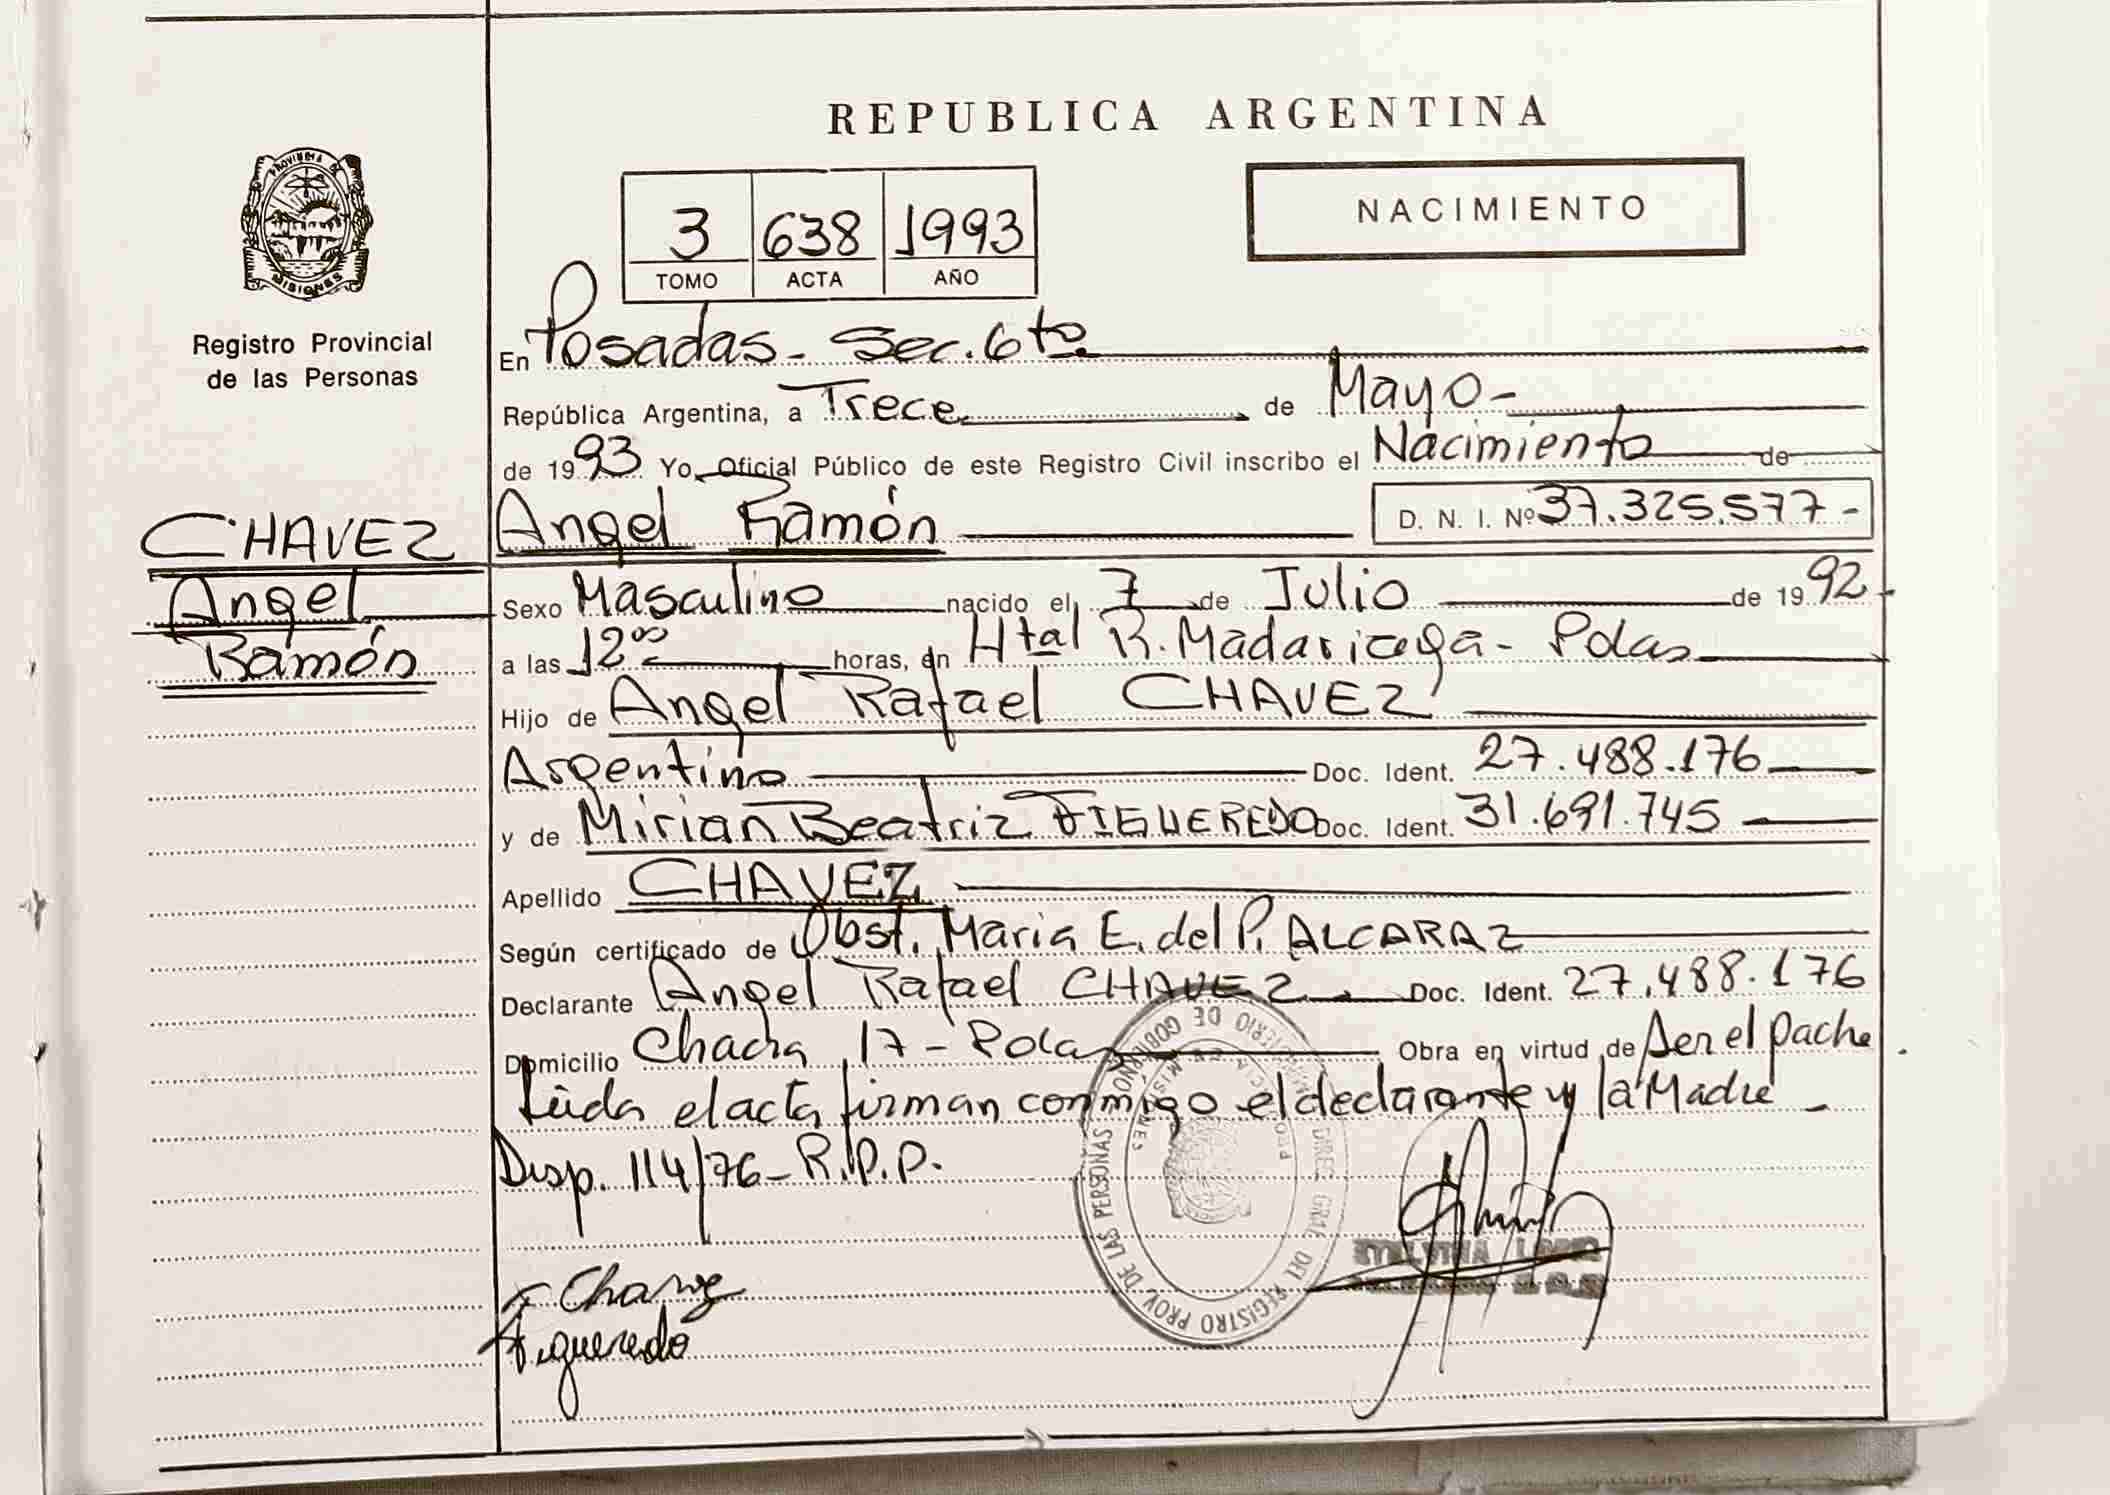 REPUBLICA ARGENTINA
PROVINCIA DE MISIONES
Registro Provincial
de las Personas
3 638 1993
TOMO ACTA AÑO
NACIMIENTO
En Posadas - Sec. 6ta.
República Argentina, a Trece de Mayo -
de 1993 Yo, Oficial Público de este Registro Civil inscribo el Nacimiento de
CHAVEZ
Angel
Ramón
Angel Ramón D. N. I. Nº 37.325.577 -
Sexo Masculino nacido el 7 de Julio de 1992
a las 12 00 horas, en Htal R. Madariaga - Pdas
Hijo de Angel Rafael CHAVEZ
Argentino Doc. Ident. 27.488.176
y de Mirian Beatriz FIGUEREDO Doc. Ident. 31.691.745
Apellido CHAVEZ
Según certificado de Obst. Maria E. del P. ALCARAZ
Declarante Angel Rafael CHAVEZ Doc. Ident. 27.488.176
Domicilio Chacra 17 - Pdas Obra en virtud de Ser el padre
Leida el acta firman conmigo el declarante y la Madre -
Disp. 114/76 - R.P.P.
Chavez
Figueredo
MINISTERIO DE GOBIERNO
DIREC. GRAL. DEL REGISTRO PROV. DE LAS PERSONAS
PROVINCIA DE MISIONES